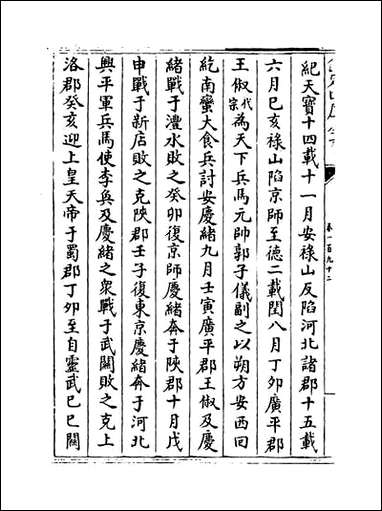 紀天寶十四載十一月安祿山反陷河北諸郡十五載
六月己亥祿山陷京師至德二載閏八月丁卯廣平郡
王俶代宗為天下兵馬元帥郭子儀副之以朔方安西回
紇南蠻大食兵討安慶緒九月壬寅廣平郡王俶及慶
緒戰于灃水敗之癸卯復京師慶緒奔于陝郡十月戊
申戰于新店敗之克陝郡壬子復東京慶緒奔于河北
興平軍兵馬使李奐及慶緒之衆戰于武關敗之克上
洛郡癸亥迎上皇天帝于蜀郡丁卯至自靈武己巳關
卷一百九十二